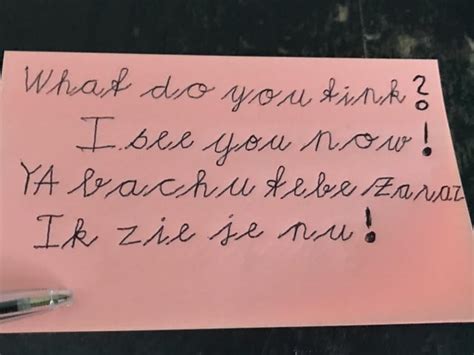 What do you tink?
I see you now!
YA bachu tebe zaraz
Ik zie je nu!